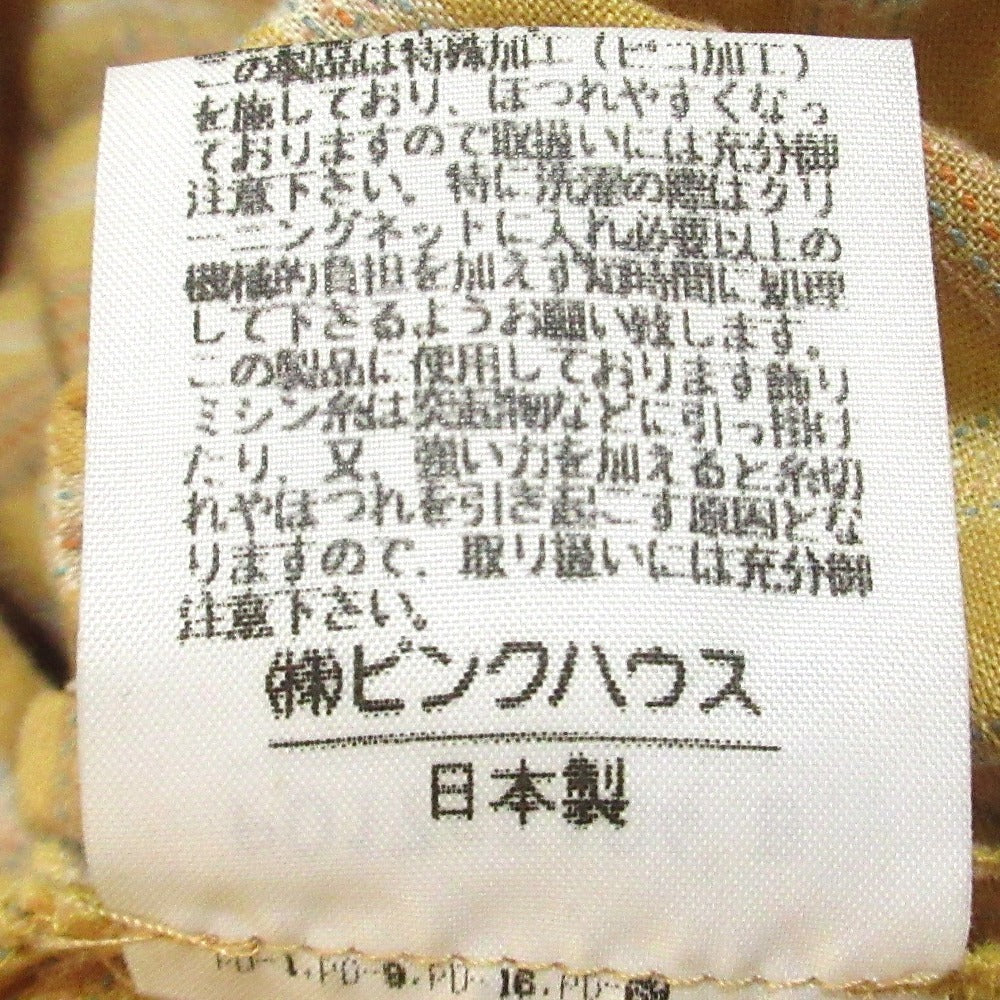 この製品は特殊加工(ピコ加工)
を施しており、ほつれやすくなっ
ておりますので取扱いには充分御
注意下さい。特に洗濯の際はクリ
ーニングネットに入れ必要以上の
機械的負担を加えず短時間に処理
して下さるようお願い致します。
この製品に使用しております飾り
ミシン糸は突起物などに引っ掛け
たり、又、強い力を加えると糸切
れやほつれを引き起こす原因とな
りますので、取り扱いには充分御
注意下さい。
㈱ピンクハウス
日本製
PD-1.PD-9.PD-16.PD-